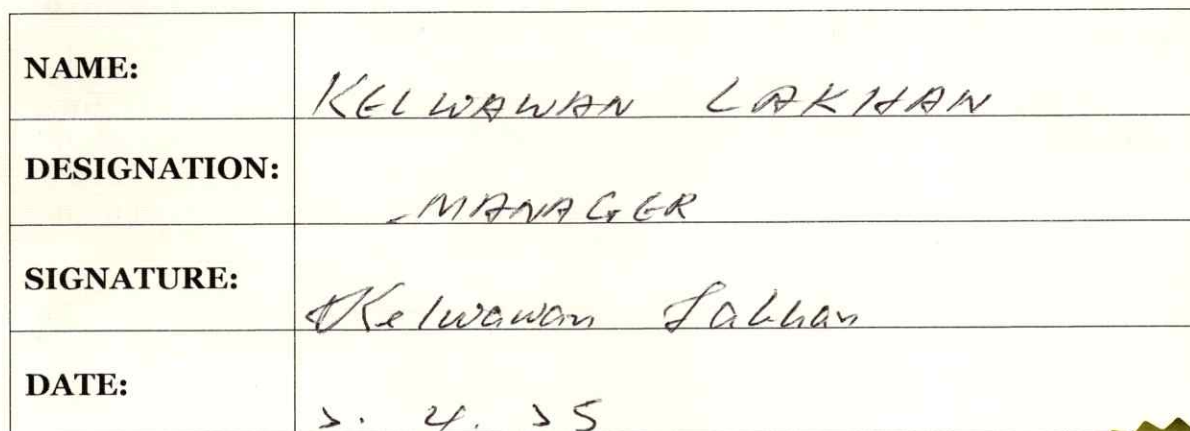 NAME: KELWAWAN LAKHAN
DESIGNATION: MANAGER
SIGNATURE: Kelwawan Lakhan
DATE: 2. 4. 25